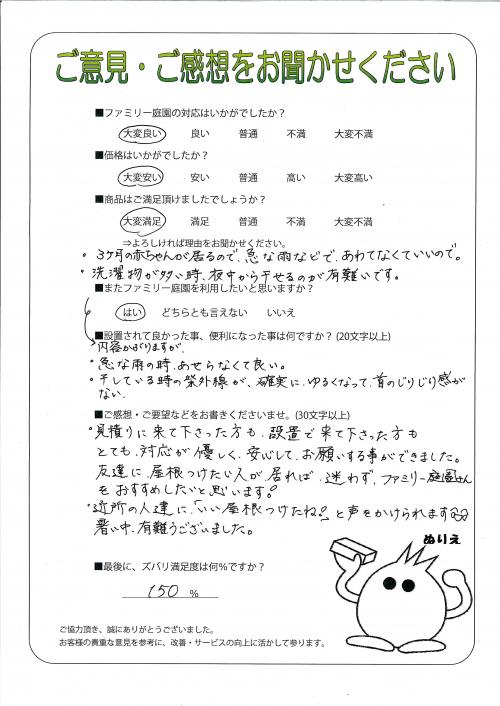 ご意見・ご感想をお聞かせください
■ファミリー庭園の対応はいかがでしたか？
大変良い 良い 普通 不満 大変不満
■価格はいかがでしたか？
大変安い 安い 普通 高い 大変高い
■商品はご満足頂けましたでしょうか？
大変満足 満足 普通 不満 大変不満
⇒よろしければ理由をお聞かせください。
・3ヶ月の赤ちゃんが居るので、急な雨などで、あわてなくていいので。
・洗濯物が多い時、夜中から干せるのが有難いです。
■またファミリー庭園を利用したいと思いますか？
はい どちらとも言えない いいえ
■設置されて良かった事、便利になった事は何ですか？ (20文字以上)
内容かぶりますが、
・急な雨の時、あせらなくて良い。
・干している時の紫外線が、確実に、ゆるくなって、首のじりじり感が
ない。
■ご感想・ご要望などをお書きくださいませ。(30文字以上)
・見積りに来て下さった方も、設置で来て下さった方も
とても、対応が優しく、安心して、お願いする事ができました。
友達に、屋根つけたい人が居れば、迷わず、ファミリー庭園さん
をおすすめしたいと思います!
・近所の人達に、「いい屋根つけたね!」と声をかけられます
暑い中、有難うございました。
ぬりえ
■最後に、ズバリ満足度は何％ですか？
150 %
ご協力頂き、誠にありがとうございました。
お客様の貴重な意見を参考に、改善・サービスの向上に活かして参ります。